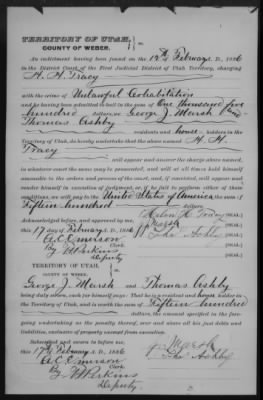 TERRITORY OF UTAH,
COUNTY OF WEBER.
An indictment having been found on the 17th February A. D., 1886
in the District Court of the First Judicial District of Utah Territory, charging
H. H. Tracy
with the crime of Unlawful Cohabitation
and he having been admitted to bail in the sum of One thousand five
hundred George J. Marsh and
Thomas Ashby
residents and house-holders in the
Territory of Utah, do hereby undertake that the above named H. H.
Tracy
will appear and answer the charge above named,
in whatever court the same may be prosecuted, and will at all times hold himself
amenable to the orders and process of the court, and, if convicted, will appear and
render himself in execution of judgment, or if he fail to perform either of these
conditions, we will pay to the United States of America the sum of
Fifteen hundred dollars.
Tracy [SEAL.]
Acknowledged before and approved by me, Marsh [SEAL.]
this 17 day of February A. D. 1886 Ashby [SEAL.]
A. C. Emerson [SEAL.]
Clerk.
By Perkins
Deputy
TERRITORY OF UTAH,
COUNTY OF WEBER.
George J. Marsh and Thomas Ashby
being duly sworn, each for himself says: That he is a resident and house holder in
the Territory of Utah, and is worth the sum of Fifteen hundred
dollars, the amount specified in the fore-
going undertaking as the penalty thereof, over and above all his just debts and
liabilities, exclusive of property exempt from execution.
Subscribed and sworn to before me
this 17th February A. D. 1886 Marsh
A. C. Emerson Ashby
Clerk.
By Perkins
Deputy.